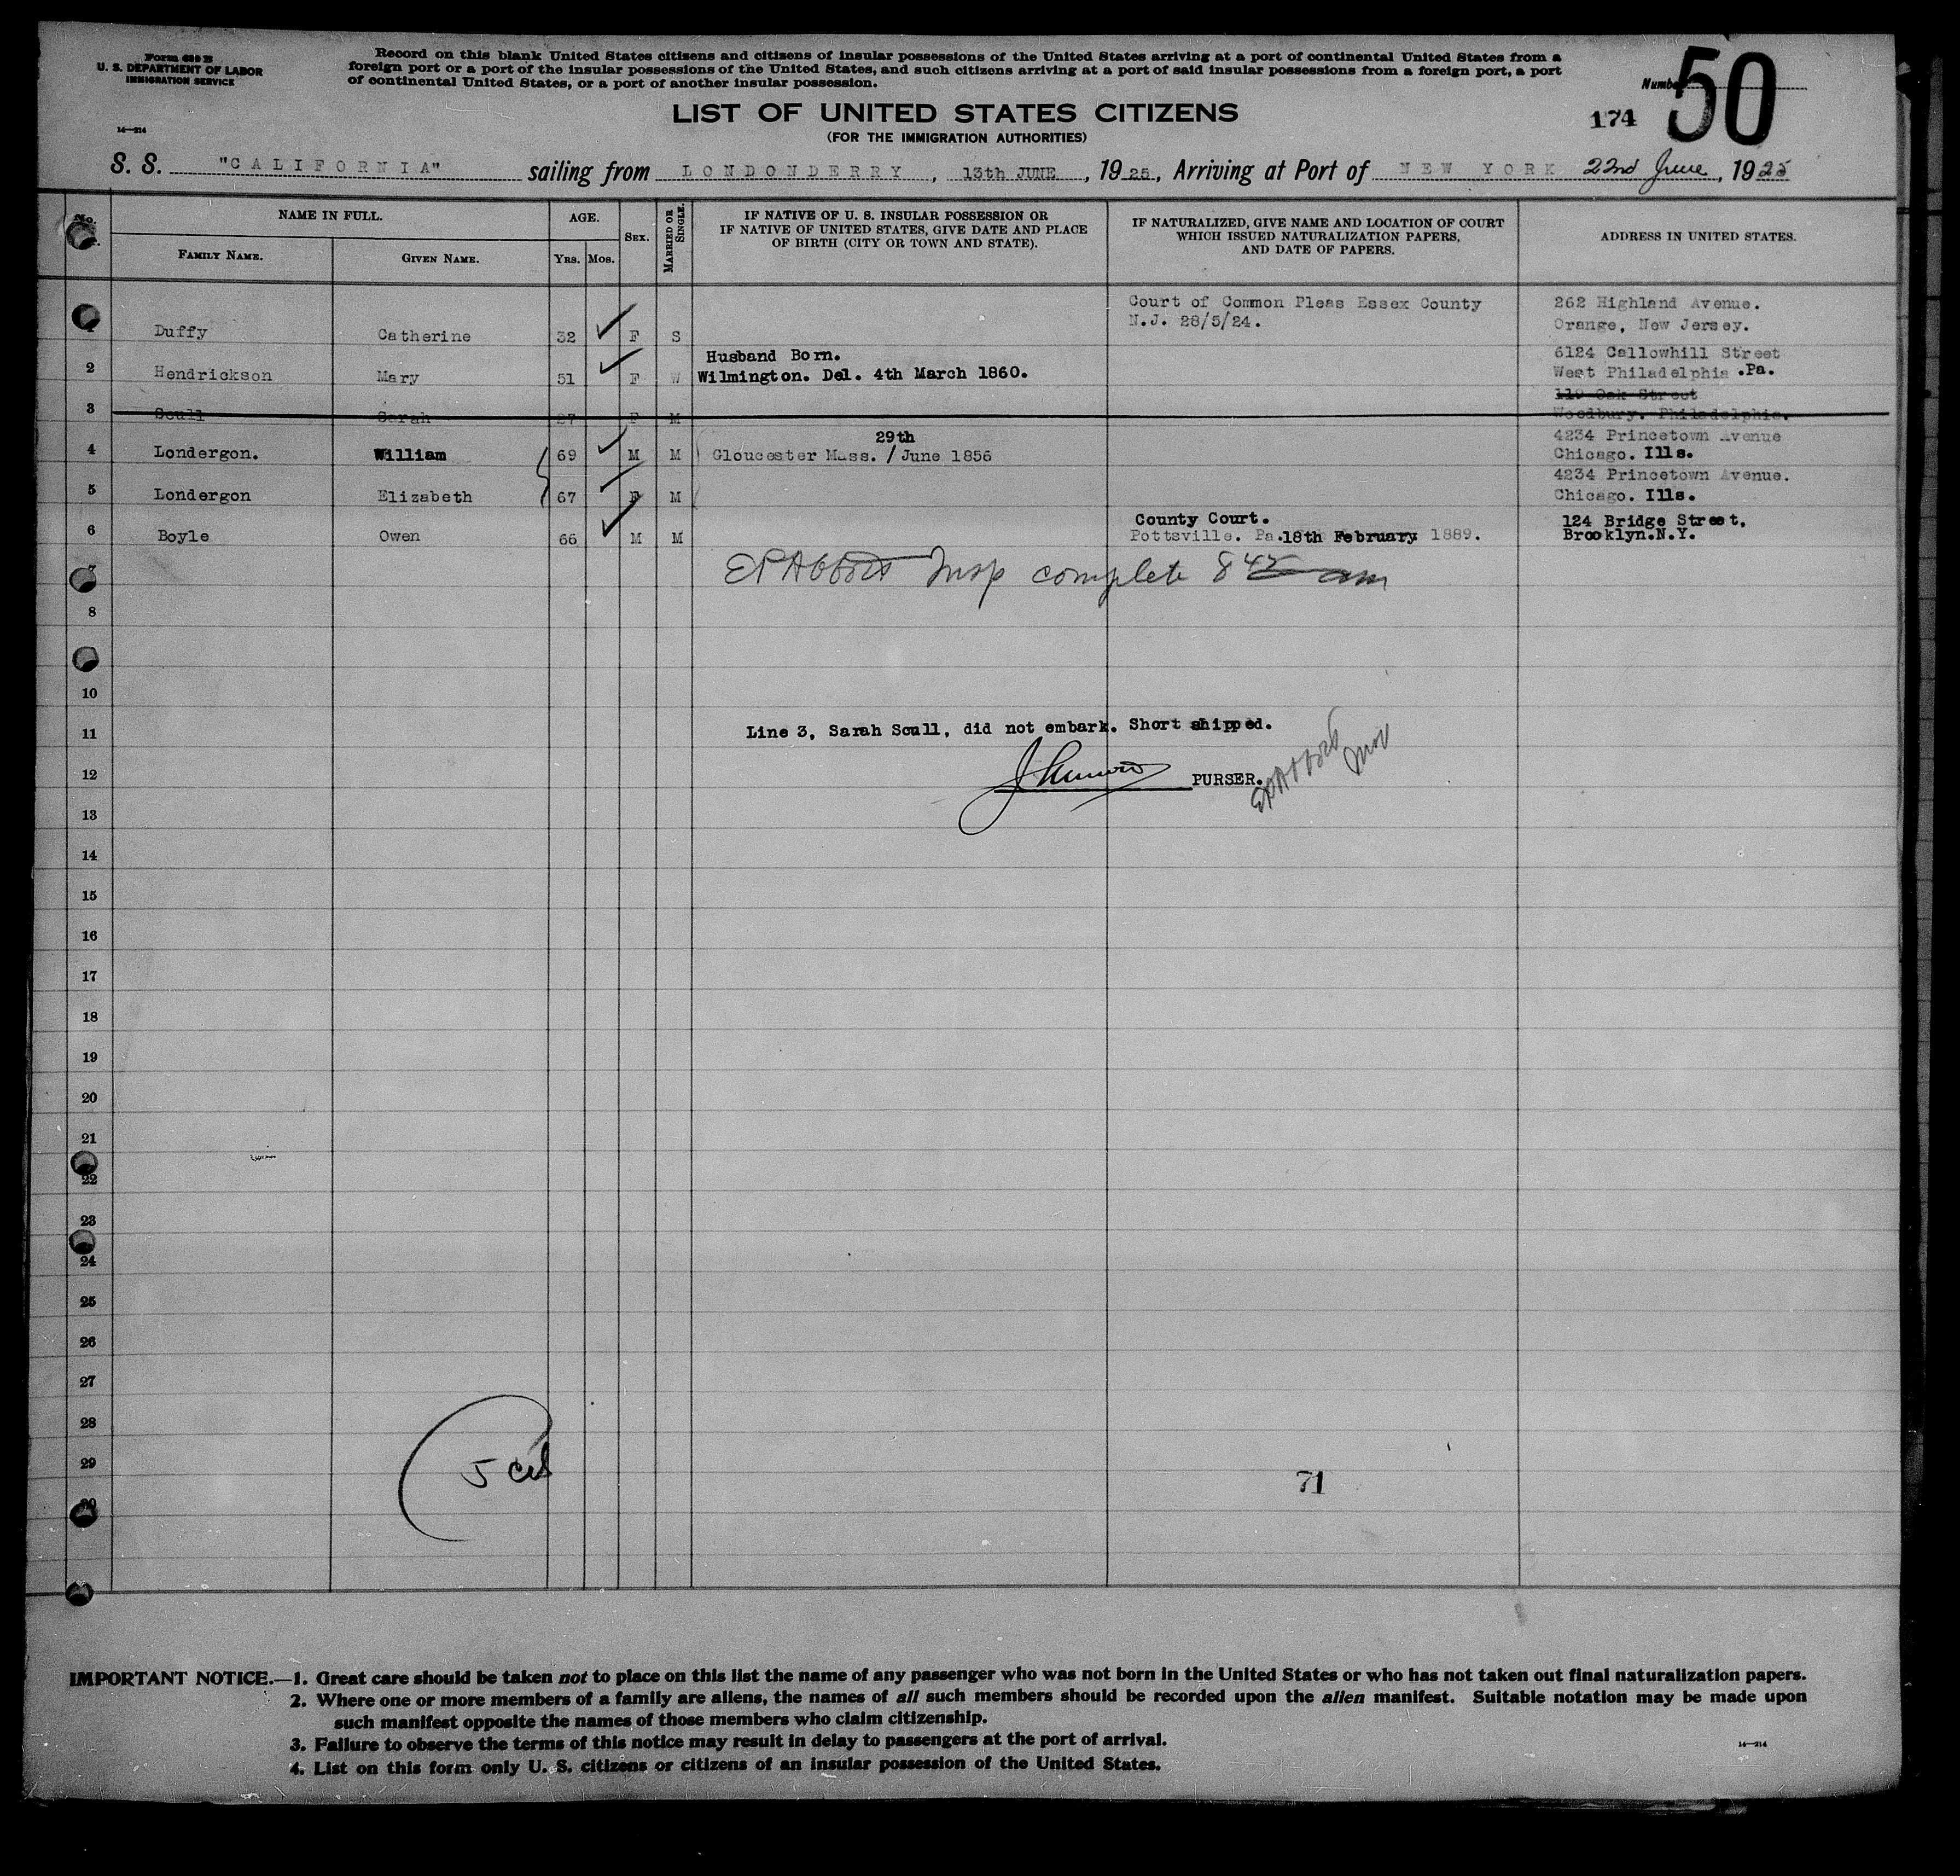 Form 630 B
U. S. DEPARTMENT OF LABOR
IMMIGRATION SERVICE
Record on this blank United States citizens and citizens of insular possessions of the United States arriving at a port of continental United States from a
foreign port or a port of the insular possessions of the United States, and such citizens arriving at a port of said insular possessions from a foreign port, a port
of continental United States, or a port of another insular possession.
Number 50
14—214
LIST OF UNITED STATES CITIZENS
(FOR THE IMMIGRATION AUTHORITIES)
174
S. S. "CALIFORNIA" sailing from LONDONDERRY, 13th JUNE, 1925, Arriving at Port of NEW YORK 22nd June, 1925
No. NAME IN FULL. AGE. SEX. MARRIED OR SINGLE. IF NATIVE OF U. S. INSULAR POSSESSION OR IF NATIVE OF UNITED STATES, GIVE DATE AND PLACE OF BIRTH (CITY OR TOWN AND STATE). IF NATURALIZED, GIVE NAME AND LOCATION OF COURT WHICH ISSUED NATURALIZATION PAPERS, AND DATE OF PAPERS. ADDRESS IN UNITED STATES.
FAMILY NAME. GIVEN NAME. YRS. MOS.
Court of Common Pleas Essex County 262 Highland Avenue.
1 Duffy Catherine 32 F S N.J. 28/5/24. Orange, New Jersey.
Husband Born. 6124 Callowhill Street
2 Hendrickson Mary 51 F W Wilmington. Del. 4th March 1860. West Philadelphia .Pa.
119 Oak Street
3 Scull Sarah 27 F M Woodbury. Philadelphia.
29th 4234 Princetown Avenue
4 Londergon. William 69 M M Gloucester Mass. / June 1856 Chicago. Ills.
4234 Princetown Avenue.
5 Londergon Elizabeth 67 F M Chicago. Ills.
County Court. 124 Bridge Street.
6 Boyle Owen 66 M M Pottsville. Pa. 18th February 1889. Brooklyn.N.Y.
7 EPAbbott Insp complete 8 45 am
8
10
11 Line 3, Sarah Scull, did not embark. Short shipped.
12 PURSER. EPAbbott Insp
13
14
15
16
17
18
19
20
21
22
23
24
25
26
27
28
29 5 cit
71
30
IMPORTANT NOTICE.—1. Great care should be taken not to place on this list the name of any passenger who was not born in the United States or who has not taken out final naturalization papers.
2. Where one or more members of a family are aliens, the names of all such members should be recorded upon the alien manifest. Suitable notation may be made upon
such manifest opposite the names of those members who claim citizenship.
3. Failure to observe the terms of this notice may result in delay to passengers at the port of arrival.
14—214
4. List on this form only U. S. citizens or citizens of an insular possession of the United States.